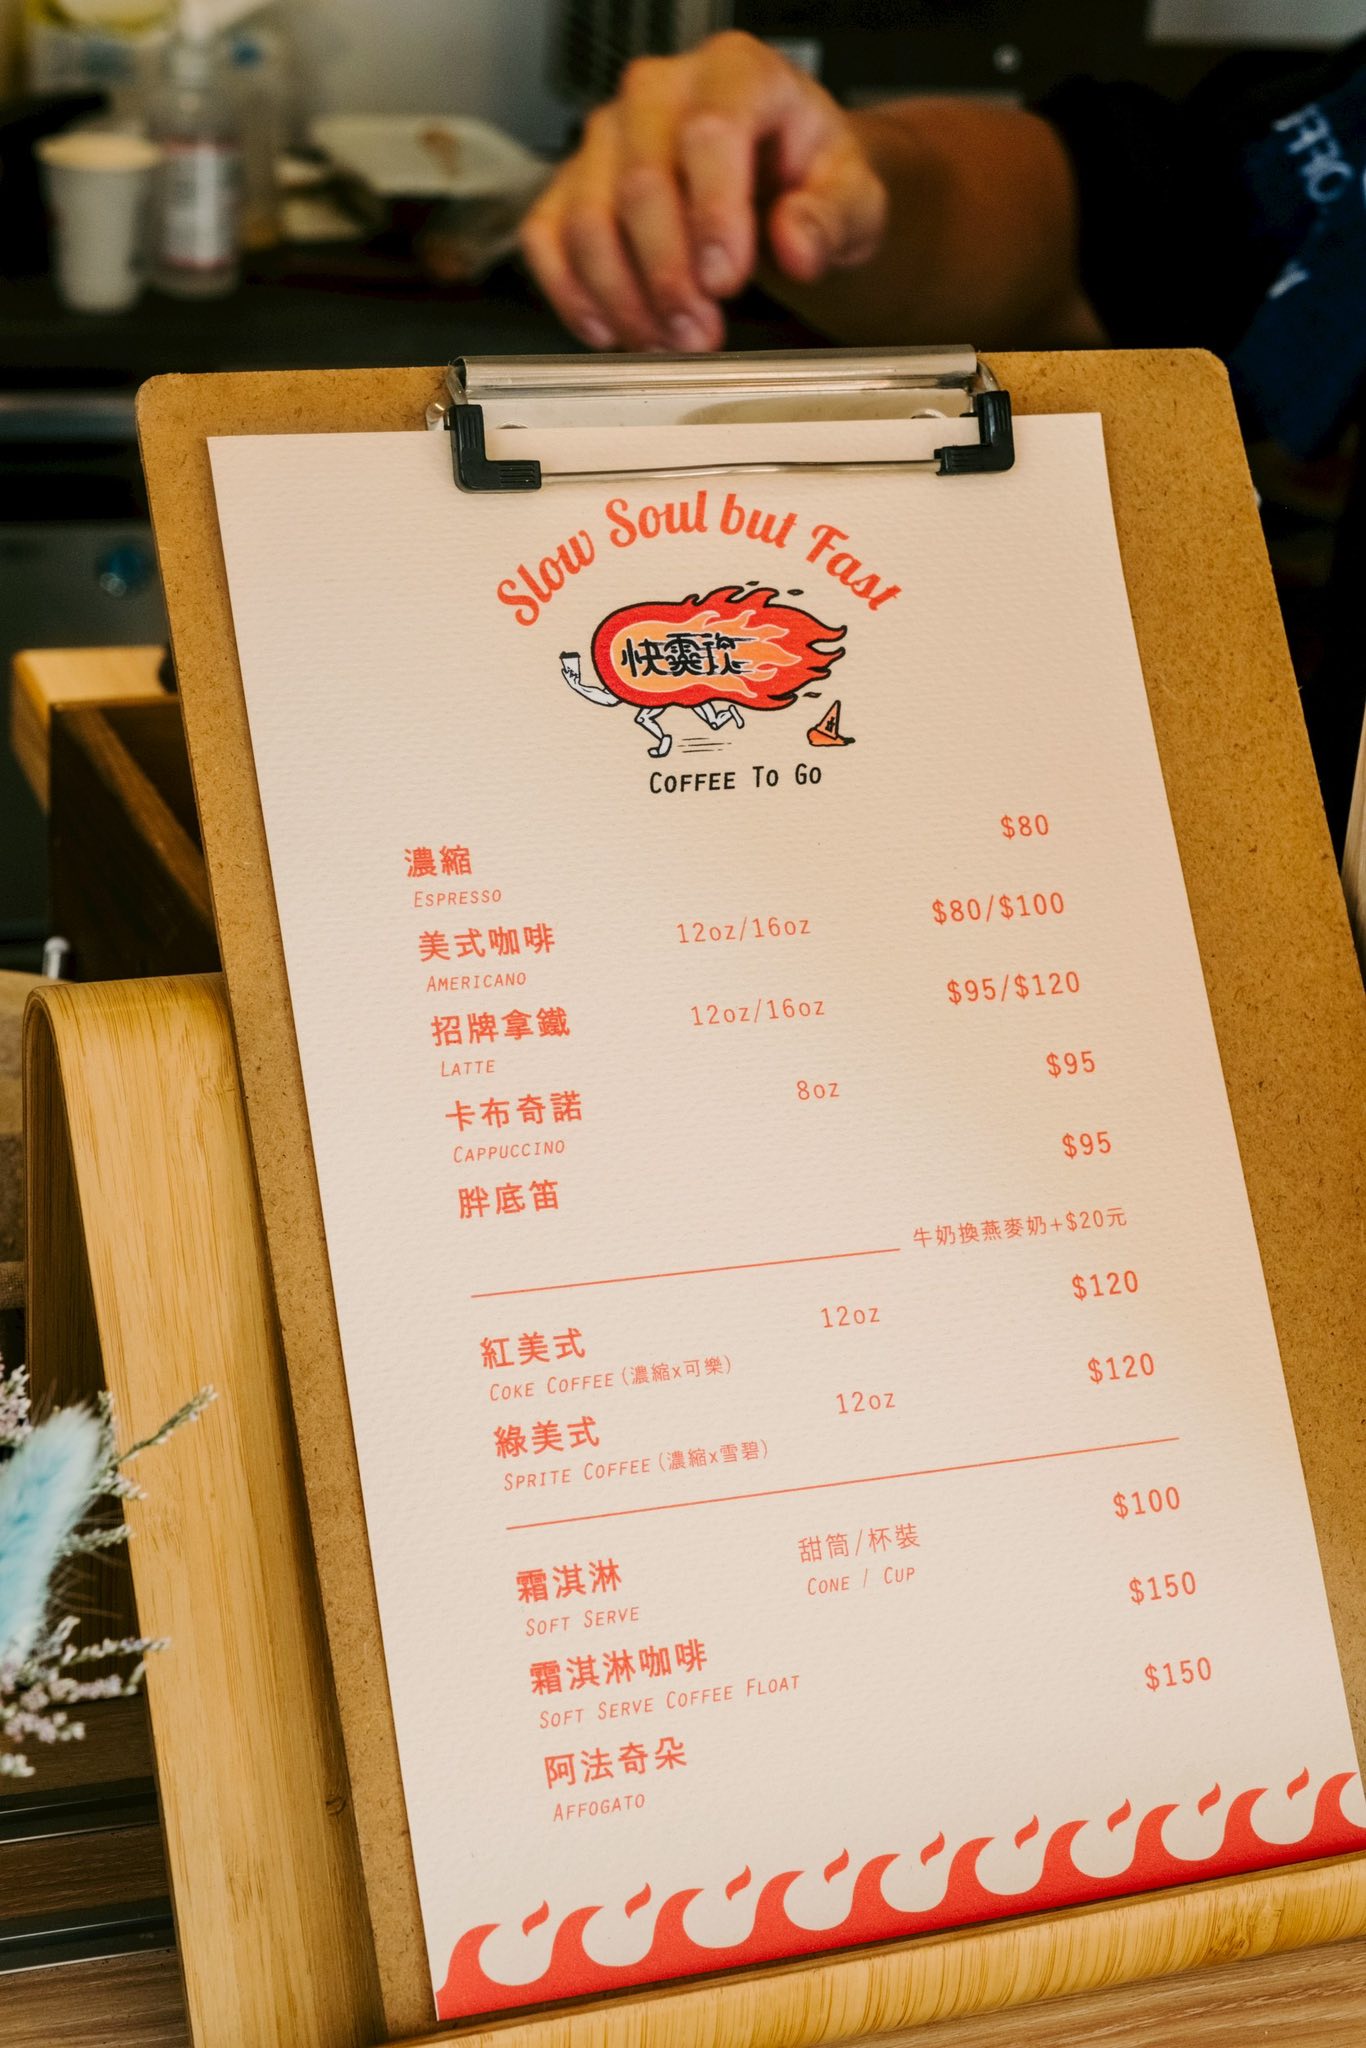 Slow Soul but Fast
COFFEE TO GO
濃縮 $80
ESPRESSO
美式咖啡 12oz/16oz $80/$100
AMERICANO
招牌拿鐵 12oz/16oz $95/$120
LATTE
卡布奇諾 8oz $95
CAPPUCCINO
胖底笛 $95
牛奶換燕麥奶+$20元
紅美式 12oz $120
COKE COFFEE(濃縮x可樂)
綠美式 12oz $120
SPRITE COFFEE(濃縮x雪碧)
霜淇淋 甜筒/杯裝 $100
SOFT SERVE CONE / CUP
霜淇淋咖啡 $150
SOFT SERVE COFFEE FLOAT
阿法奇朵 $150
AFFOGATO